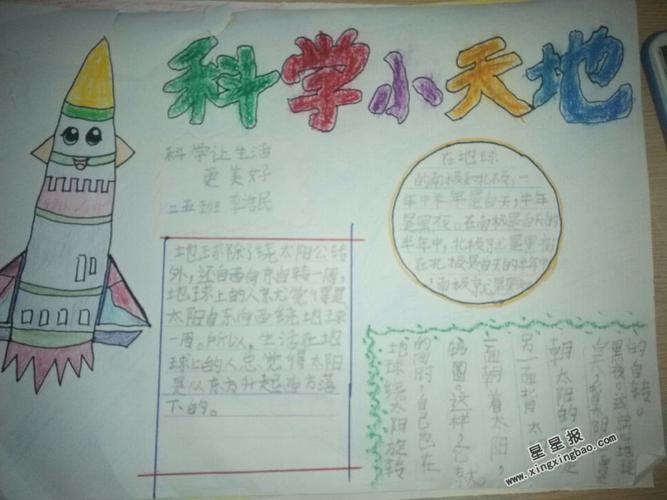 科学小天地
科学让生活
更美好
二五班 李浩民
在地球
的南极和北极,一
年中半年是白天,半年
是黑夜。在南极是白天的
半年中,北极就是黑夜
在北极是白天的半年中
,南极就是黑夜
地球除了绕太阳公转
外,还自西向东自转一周,
地球上的人总觉得是
太阳自东向西绕地球
一周。所以,生活在地
球上的人总觉得太阳
是从东方升起西方落
下的。
地球绕太阳旋转
的同时,自己也在
转圈。这样,它就
一面朝着太阳,
另一面背太
朝太阳的是
白天,背太阳是
黑夜。这就是地球
的自转。
星星报
www.xingxingbao.com